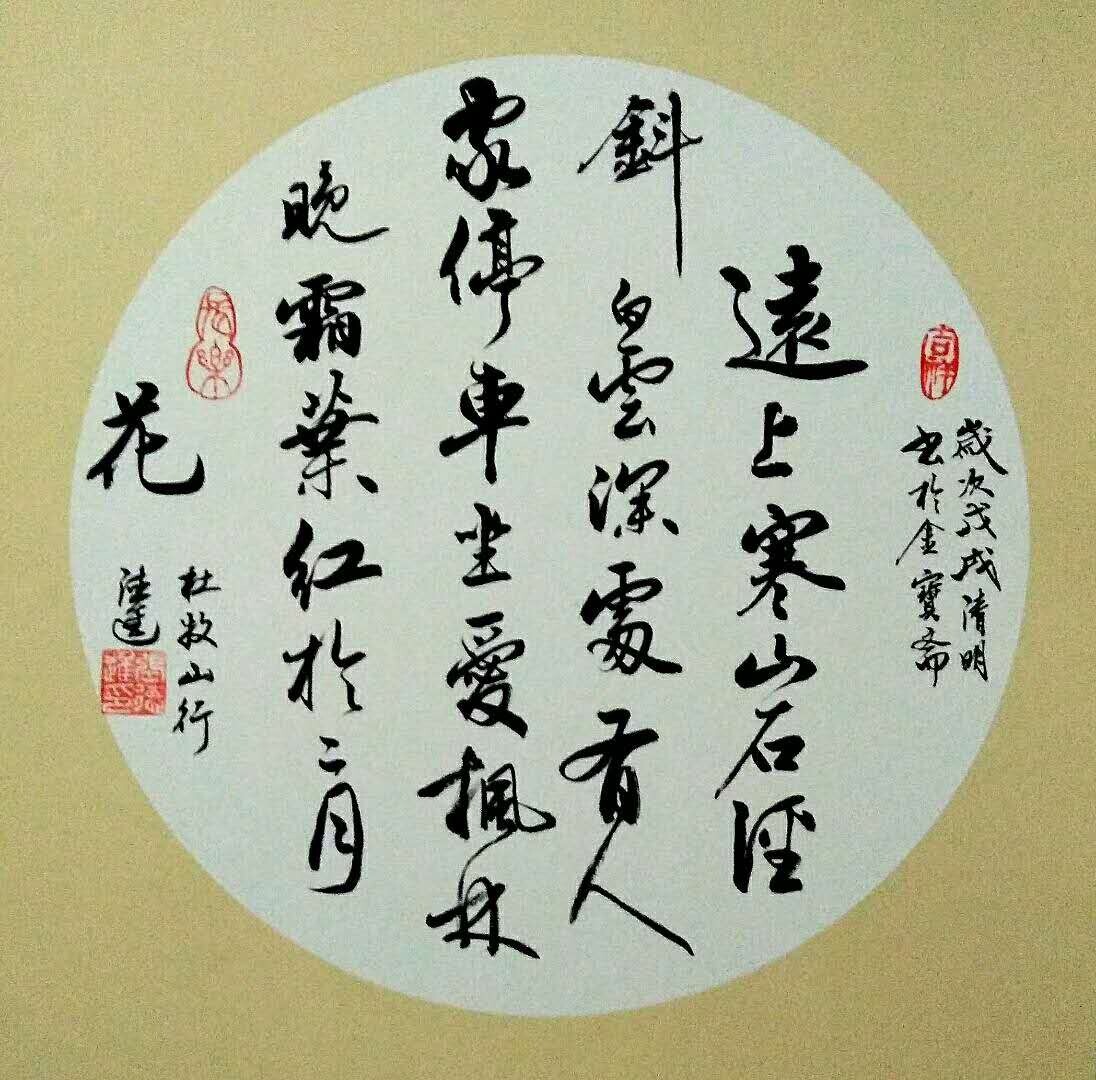 歲次戊戌清明
书於金寶斋
遠上寒山石徑
斜白雲深處有人
家停車坐愛楓林
晚霜葉紅於二月
花
杜牧山行